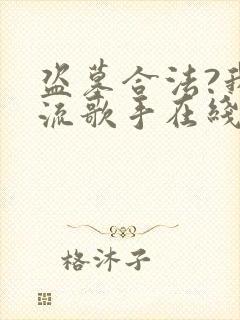 盗墓合法?我
流歌手在线
格沐子